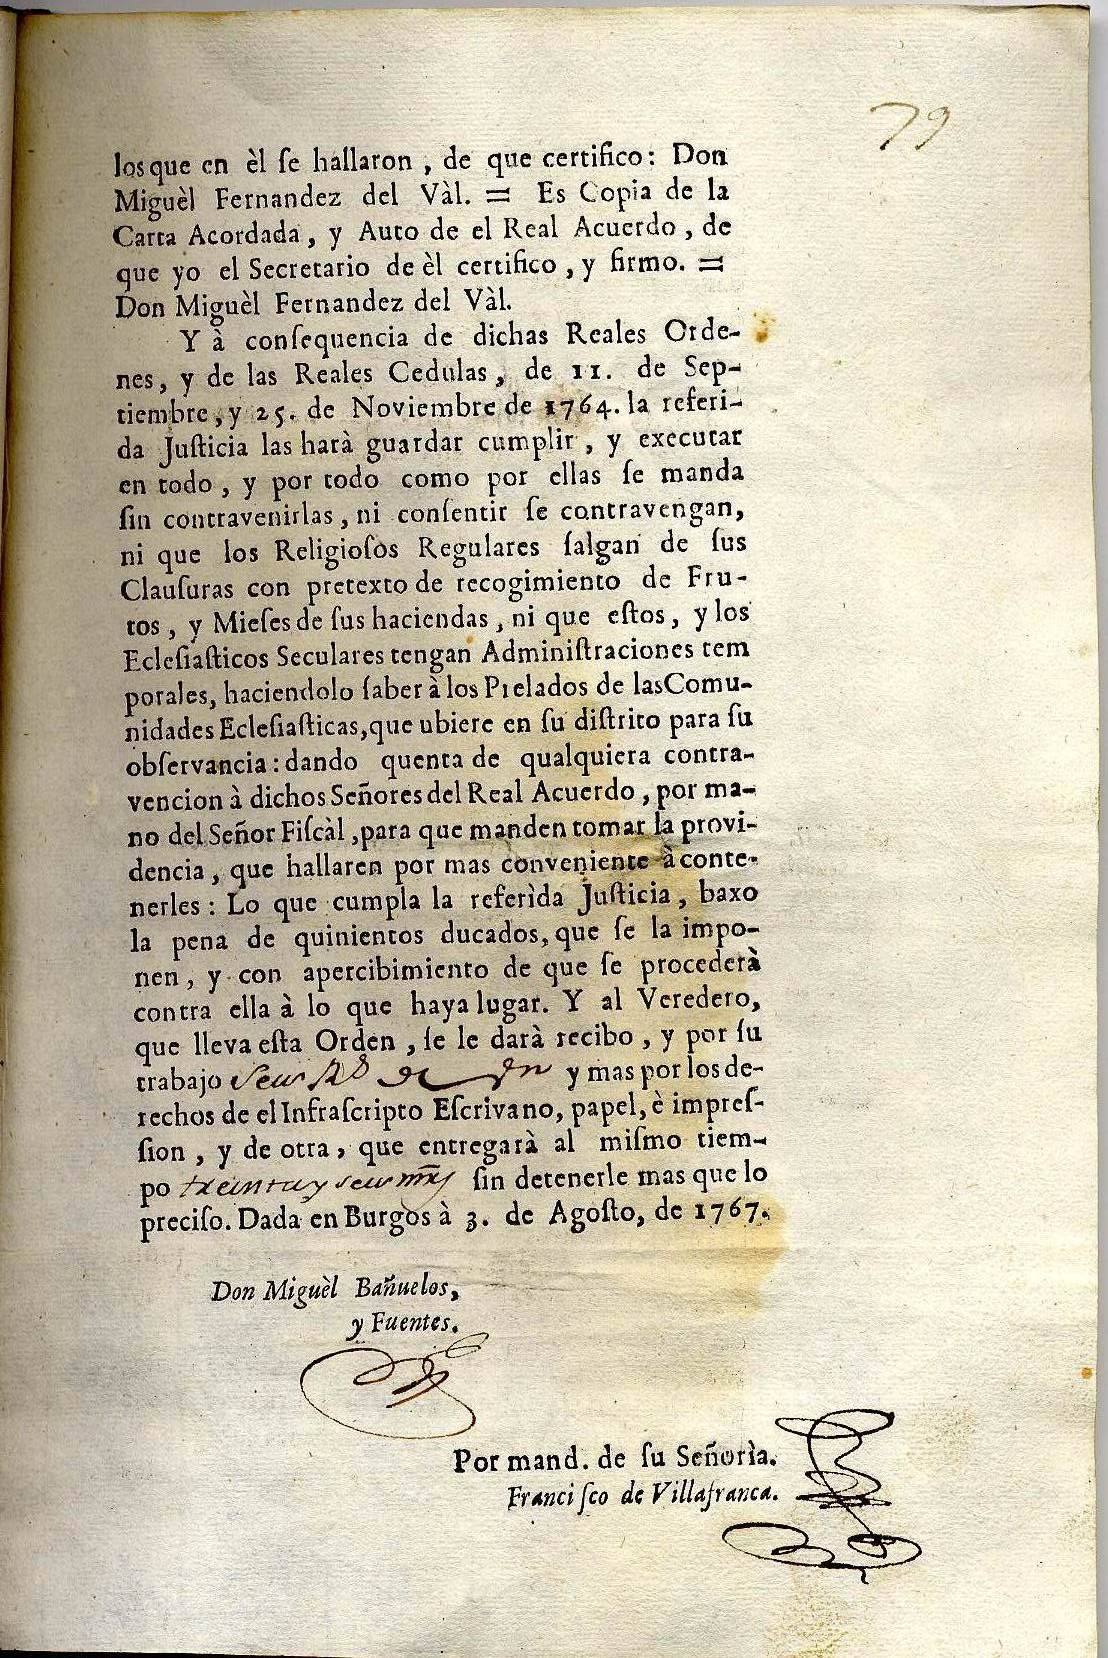 79
los que en èl ſe hallaron, de que certifico: Don
Miguèl Fernandez del Vàl. = Es Copia de la
Carta Acordada, y Auto de el Real Acuerdo, de
que yo el Secretario de èl certifico, y firmo. =
Don Miguèl Fernandez del Vàl.
Y à conſequencia de dichas Reales Orde-
nes, y de las Reales Cedulas, de 11. de Sep-
tiembre, y 25. de Noviembre de 1764. la referi-
da Juſticia las harà guardar cumplir, y executar
en todo, y por todo como por ellas ſe manda
ſin contravenirlas, ni conſentir ſe contravengan,
ni que los Religioſos Regulares ſalgan de ſus
Clauſuras con pretexto de recogimiento de Fru-
tos, y Mieſes de ſus haciendas, ni que eſtos, y los
Ecleſiaſticos Seculares tengan Adminiſtraciones tem
porales, haciendolo ſaber à los Prelados de las Comu-
nidades Ecleſiaſticas, que ubiere en ſu diſtrito para ſu
obſervancia: dando quenta de qualquiera contra-
vencion à dichos Señores del Real Acuerdo, por ma-
no del Señor Fiſcàl, para que manden tomar la provi-
dencia, que hallaren por mas conveniente à conte-
nerles: Lo que cumpla la referìda Juſticia, baxo
la pena de quinientos ducados, que ſe la impo-
nen, y con apercibimiento de que ſe procederà
contra ella à lo que haya lugar. Y al Veredero,
que lleva eſta Orden, ſe le darà recibo, y por ſu
trabajo Seis R.s de Vn y mas por los de-
rechos de el Infraſcripto Eſcrivano, papel, è impreſ-
ſion, y de otra, que entregarà al miſmo tiem-
po treinta y seis mrs ſin detenerle mas que lo
preciſo. Dada en Burgos à 3. de Agoſto, de 1767.
Don Miguèl Bañuelos,
y Fuentes.
Por mand. de ſu Señorìa.
Franciſco de Villafranca.